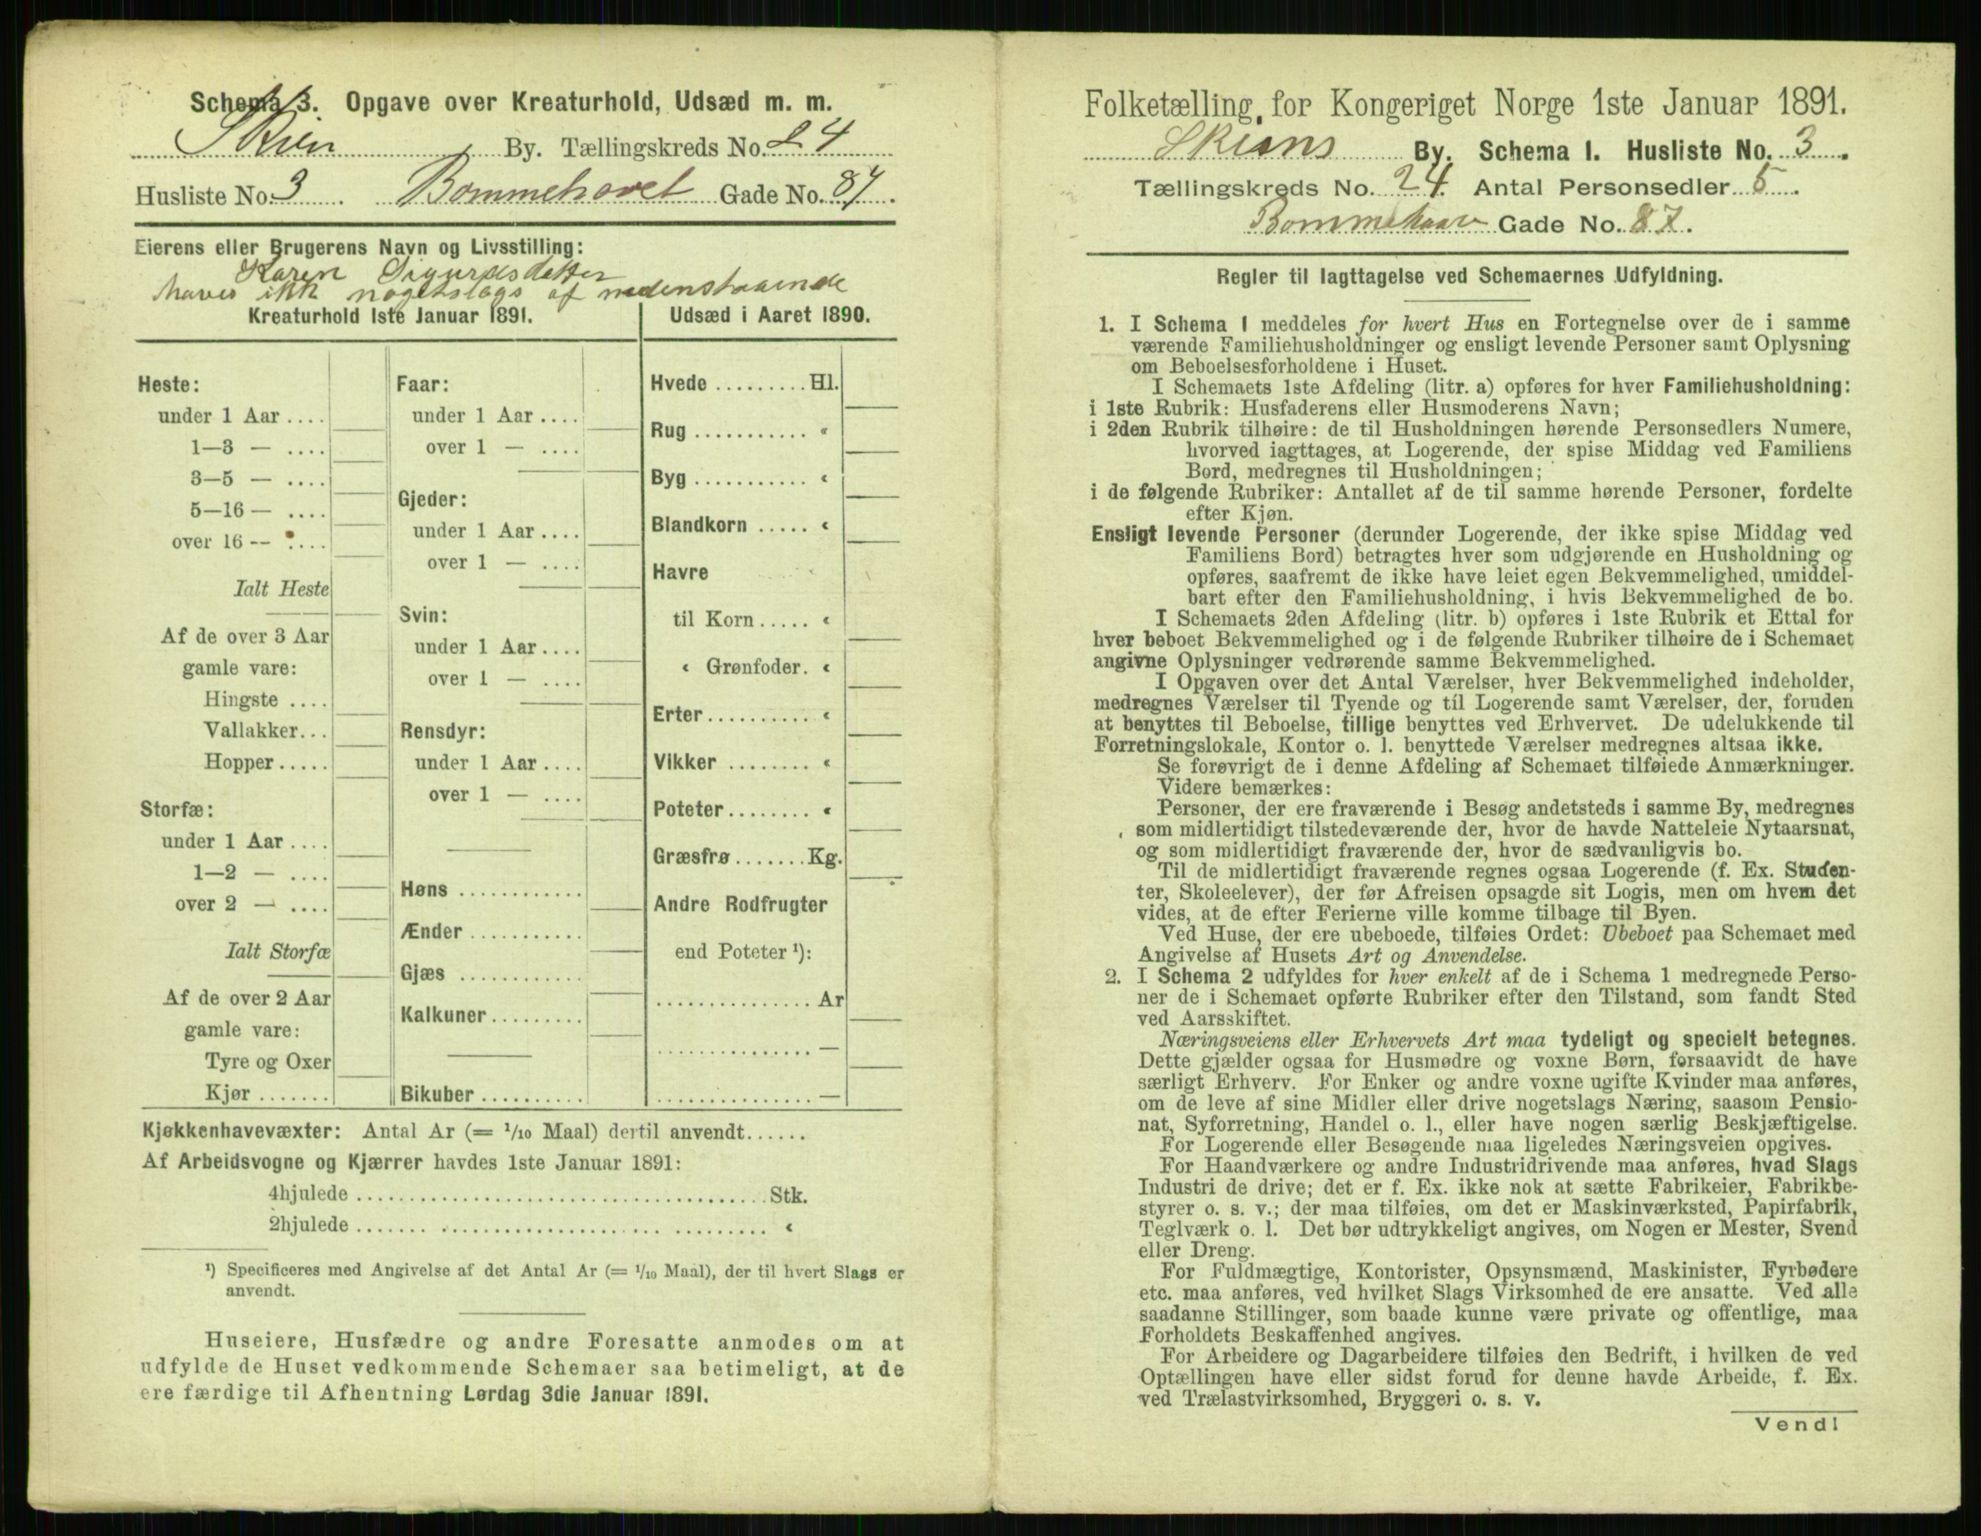 Schema 3. Opgave over Kreaturhold, Udsæd m. m.
Skien By. Tællingskreds No. 24
Husliste No. 3 Bommehovet Gade No. 87.
Eierens eller Brugerens Navn og Livsstilling:
Karen Sigurdsdatter
haver ikk nogetslags af nedenstaaende
Kreaturhold 1ste Januar 1891.
Heste:
under 1 Aar ....
1—3 — ....
3—5 — ....
5—16 — ....
over 16 -- ....
Ialt Heste
Af de over 3 Aar
gamle vare:
Hingste ....
Vallakker...
Hopper.....
Storfæ:
under 1 Aar ....
1—2 — ....
over 2 — ....
Ialt Storfæ
Af de over 2 Aar
gamle vare:
Tyre og Oxer
Kjør .......
Faar:
under 1 Aar ....
over 1 — ....
Gjeder:
under 1 Aar ....
over 1 — ....
Svin:
under 1 Aar ....
over 1 — ....
Rensdyr:
under 1 Aar ....
over 1 — ....
Høns ...........
Ænder ...........
Gjæs ............
Kalkuner.........
Bikuber ..........
Udsæd i Aaret 1890.
Hvede .........Hl.
Rug ........... «
Byg ........... «
Blandkorn ..... «
Havre
til Korn..... «
« Grønfoder. «
Erter.......... «
Vikker ........ «
Poteter........ «
Græsfrø.......Kg.
Andre Rodfrugter
end Poteter ¹):
............... Ar
............... —
............... —
Kjøkkenhavevæxter: Antal Ar (= 1/10 Maal) dertil anvendt......
Af Arbeidsvogne og Kjærrer havdes 1ste Januar 1891:
4hjulede ..................................... Stk.
2hjulede ..................................... «
¹) Specificeres med Angivelse af det Antal Ar (= 1/10 Maal), der til hvert Slags er
anvendt.
Huseiere, Husfædre og andre Foresatte anmodes om at
udfylde de Huset vedkommende Schemaer saa betimeligt, at de
ere færdige til Afhentning Lørdag 3die Januar 1891.
Folketælling for Kongeriget Norge 1ste Januar 1891.
Skiens By. Schema 1. Husliste No. 3.
Tællingskreds No. 24. Antal Personsedler 5.
Gade No. 87.
Regler til Iagttagelse ved Schemaernes Udfyldning.
1. I Schema 1 meddeles for hvert Hus en Fortegnelse over de i samme
værende Familiehusholdninger og ensligt levende Personer samt Oplysning
om Beboelsesforholdene i Huset.
I Schemaets 1ste Afdeling (litr. a) opføres for hver Familiehusholdning:
i 1ste Rubrik: Husfaderens eller Husmoderens Navn;
i 2den Rubrik tilhøire: de til Husholdningen hørende Personsedlers Numere,
hvorved iagttages, at Logerende, der spise Middag ved Familiens
Bord, medregnes til Husholdningen;
i de følgende Rubriker: Antallet af de til samme hørende Personer, fordelte
efter Kjøn.
Ensligt levende Personer (derunder Logerende, der ikke spise Middag ved
Familiens Bord) betragtes hver som udgjørende en Husholdning og
opføres, saafremt de ikke have leiet egen Bekvemmelighed, umiddel-
bart efter den Familiehusholdning, i hvis Bekvemmelighed de bo.
I Schemaets 2den Afdeling (litr. b) opføres i 1ste Rubrik et Ettal for
hver beboet Bekvemmelighed og i de følgende Rubriker tilhøire de i Schemaet
angivne Oplysninger vedrørende samme Bekvemmelighed.
I Opgaven over det Antal Værelser, hver Bekvemmelighed indeholder,
medregnes Værelser til Tyende og til Logerende samt Værelser, der, foruden
at benyttes til Beboelse, tillige benyttes ved Erhvervet. De udelukkende til
Forretningslokale, Kontor o. l. benyttede Værelser medregnes altsaa ikke.
Se forøvrigt de i denne Afdeling af Schemaet tilføiede Anmærkninger.
Videre bemærkes:
Personer, der ere fraværende i Besøg andetsteds i samme By, medregnes
som midlertidigt tilstedeværende der, hvor de havde Natteleie Nytaarsnat,
og som midlertidigt fraværende der, hvor de sædvanligvis bo.
Til de midlertidigt fraværende regnes ogsaa Logerende (f. Ex. Studen-
ter, Skoleelever), der før Afreisen opsagde sit Logis, men om hvem det
vides, at de efter Ferierne ville komme tilbage til Byen.
Ved Huse, der ere ubeboede, tilføies Ordet: Ubeboet paa Schemaet med
Angivelse af Husets Art og Anvendelse.
2. I Schema 2 udfyldes for hver enkelt af de i Schema 1 medregnede Perso-
ner de i Schemaet opførte Rubriker efter den Tilstand, som fandt Sted
ved Aarsskiftet.
Næringsveiens eller Erhvervets Art maa tydeligt og specielt betegnes.
Dette gjælder ogsaa for Husmødre og voxne Børn, forsaavidt de have
særligt Erhverv. For Enker og andre voxne ugifte Kvinder maa anføres,
om de leve af sine Midler eller drive nogetslags Næring, saasom Pensio-
nat, Syforretning, Handel o. l., eller have nogen særlig Beskjæftigelse.
For Logerende eller Besøgende maa ligeledes Næringsveien opgives.
For Haandværkere og andre Industridrivende maa anføres, hvad Slags
Industri de drive; det er f. Ex. ikke nok at sætte Fabrikeier, Fabrikbe-
styrer o. s. v.; der maa tilføies, om det er Maskinværksted, Papirfabrik,
Teglværk o. l. Det bør udtrykkeligt angives, om Nogen er Mester, Svend
eller Dreng.
For Fuldmægtige, Kontorister, Opsynsmænd, Maskinister, Fyrbødere
etc. maa anføres, ved hvilket Slags Virksomhed de ere ansatte. Ved alle
saadanne Stillinger, som baade kunne være private og offentlige, maa
Forholdets Beskaffenhed angives.
For Arbeidere og Dagarbeidere tilføies den Bedrift, i hvilken de ved
Optællingen have eller sidst forud for denne havde Arbeide, f. Ex.
ved Trælastvirksomhed, Bryggeri o. s. v.
Vend!